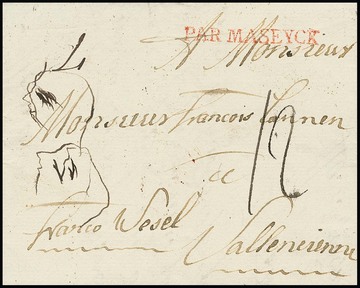 PAR MASEYCK
A Monsieur
Monsieur Francois
12
a
Franco Wesel
Vallencienne